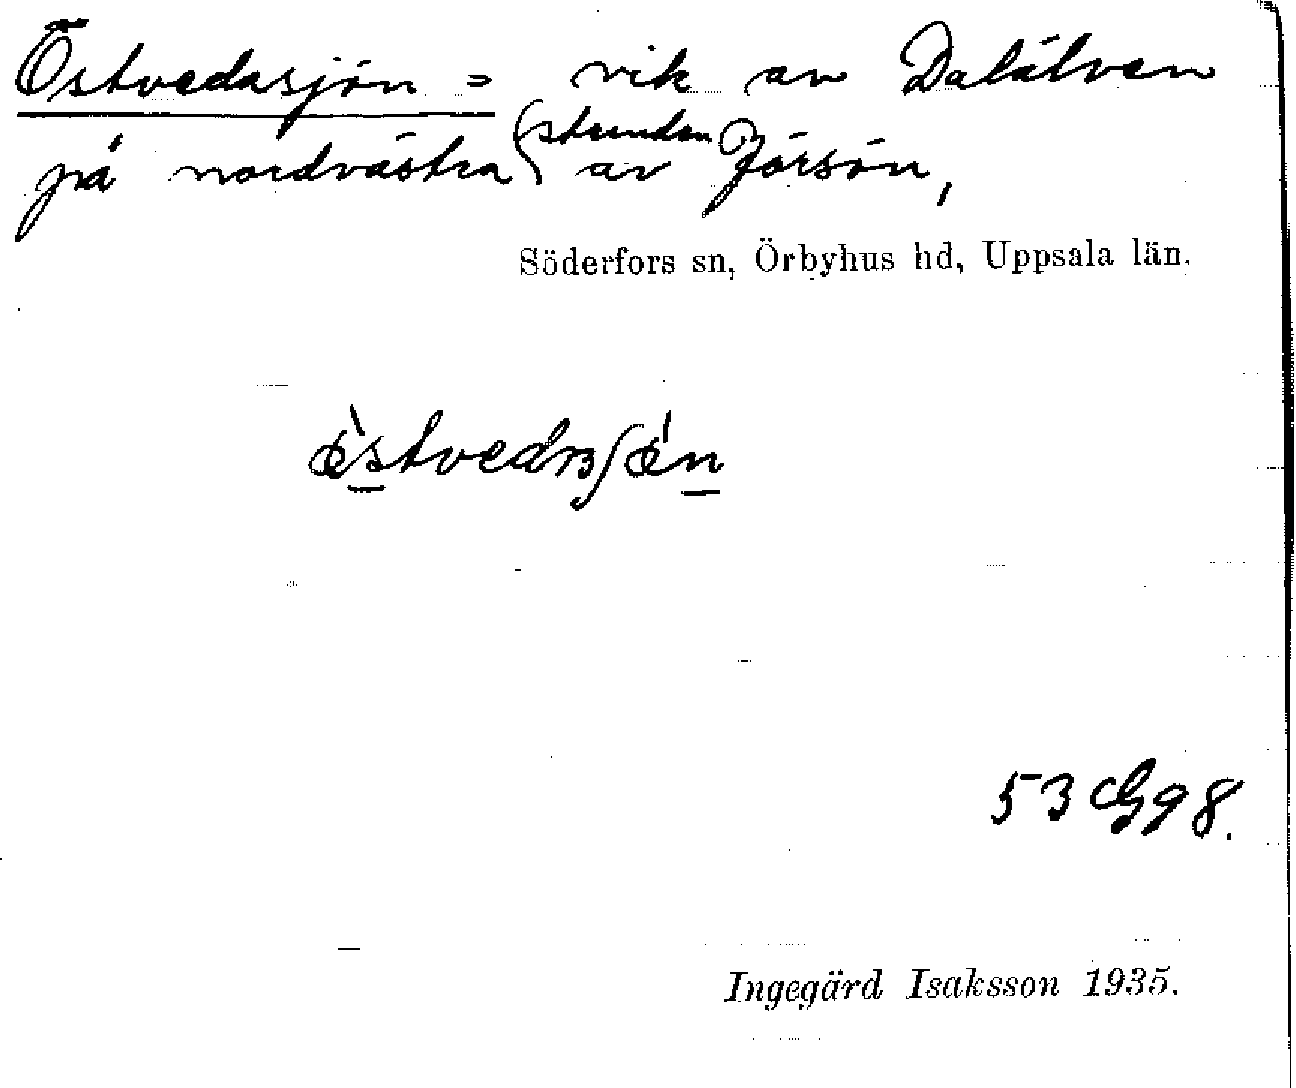 Östvedasjön = vik av Dalälven
på nordvästra stranden av Jörsön,
Söderfors sn, Örbyhus hd, Uppsala län.
53 G 98.
Ingegärd Isaksson 1935.